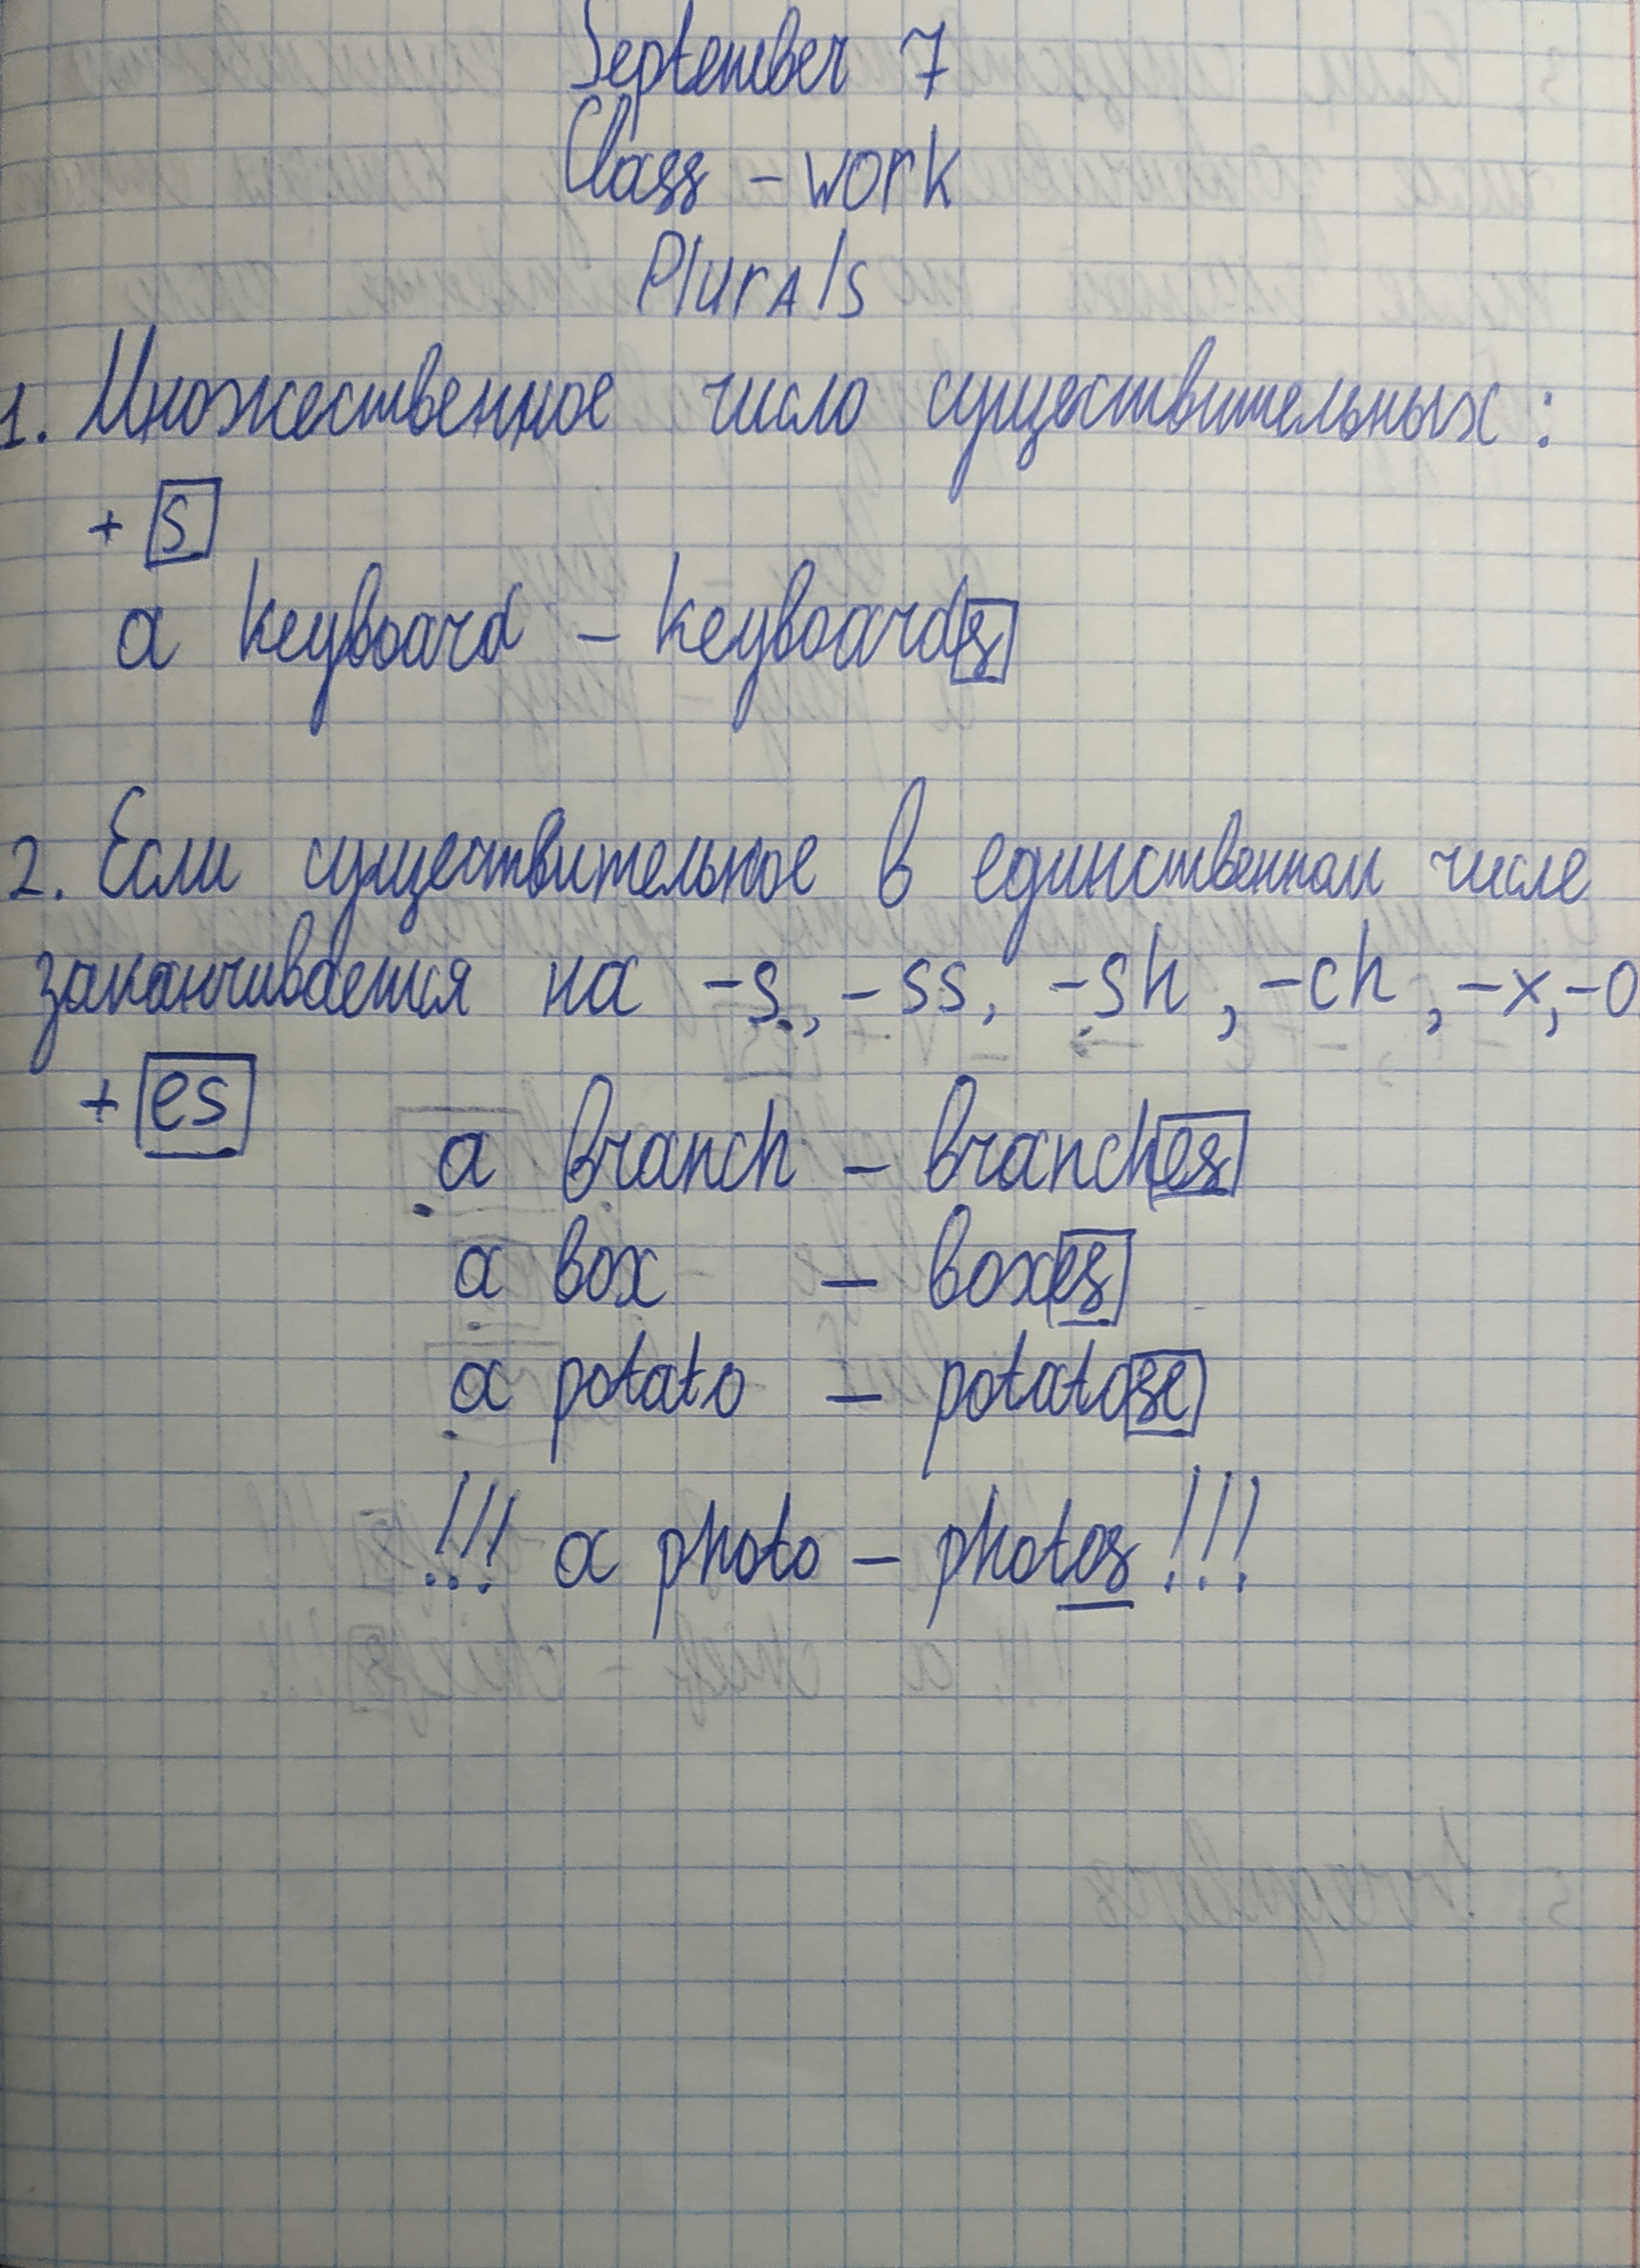 September 7
Class - work
Plurals
1. Множественное число существительных:
+ s
a keyboard - keyboards
2. Если существительное в единственном числе
заканчивается на -s, -ss, -sh, -ch, -x, -o
+ es
a branch - branches
a box - boxes
a potato - potatose
!!! a photo - photos !!!